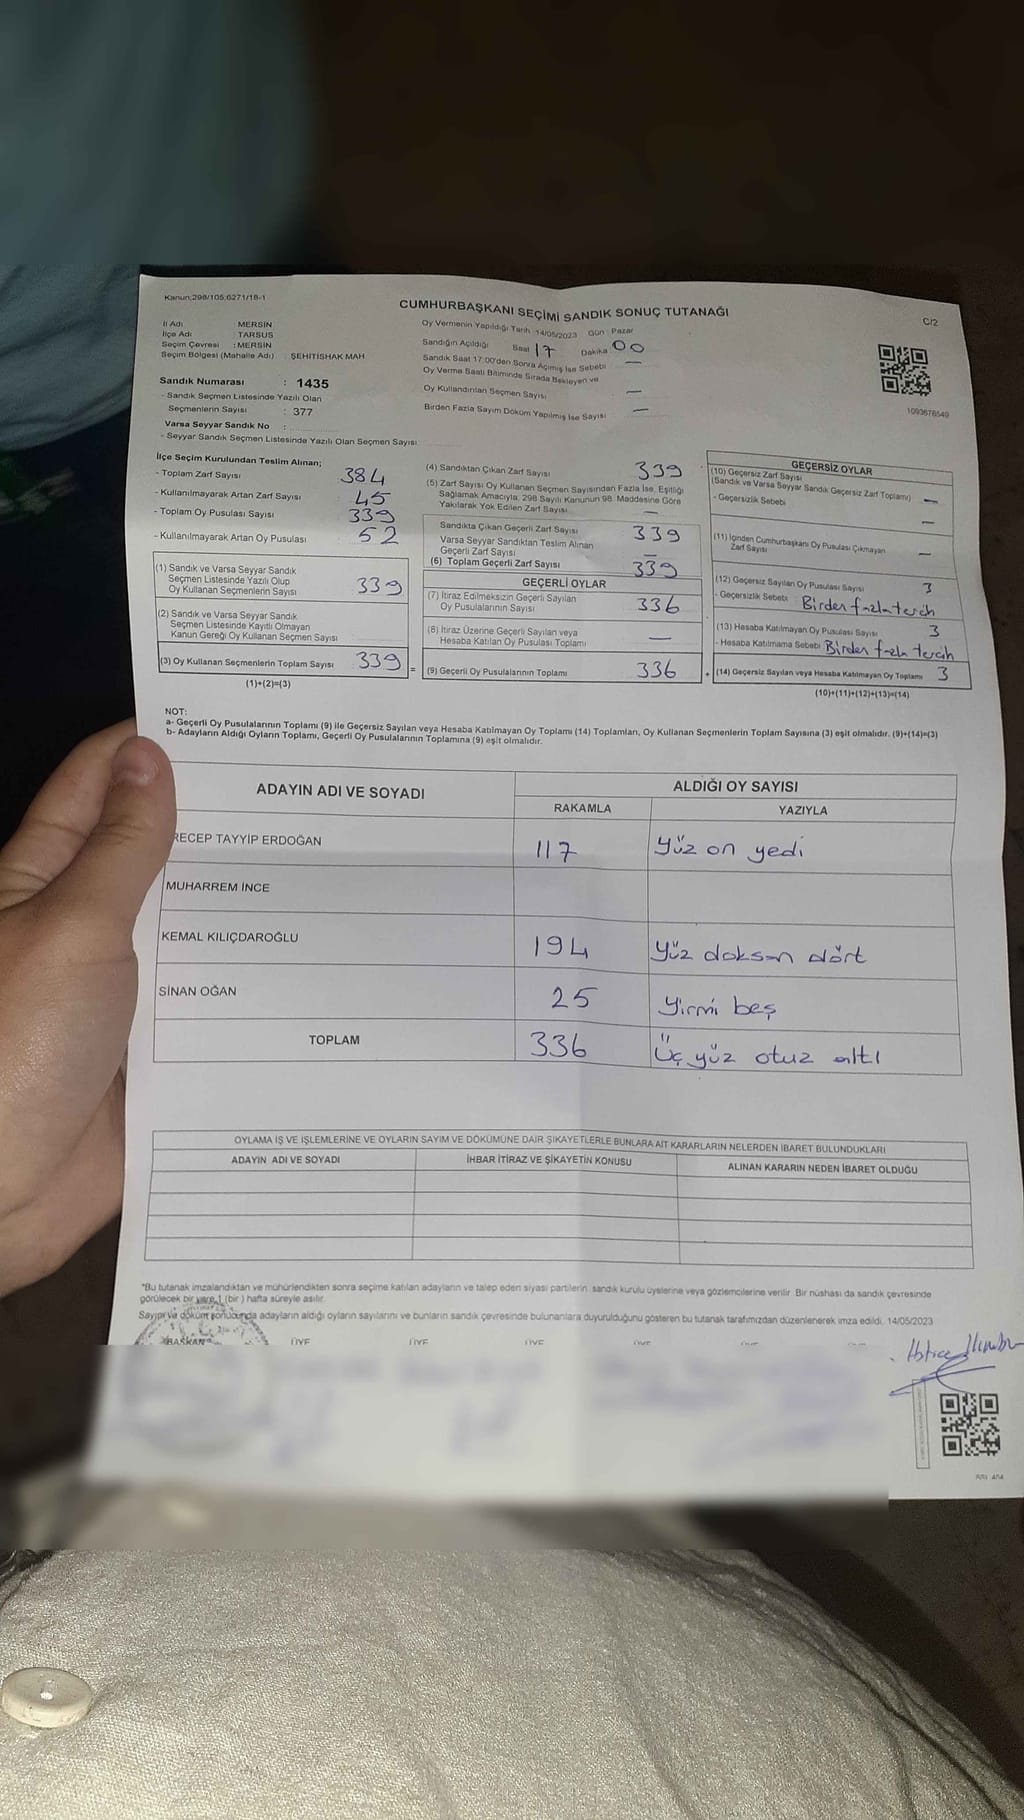 Kanun:298/105;6271/18-1
CUMHURBAŞKANI SEÇİMİ SANDIK SONUÇ TUTANAĞI
C/2
İl Adı : MERSİN
İlçe Adı : TARSUS
Seçim Çevresi : MERSİN
Seçim Bölgesi (Mahalle Adı) : ŞEHİTİSHAK MAH
Sandık Numarası : 1435
- Sandık Seçmen Listesinde Yazılı Olan
Seçmenlerin Sayısı : 377
Varsa Seyyar Sandık No :
- Seyyar Sandık Seçmen Listesinde Yazılı Olan Seçmen Sayısı
Oy Vermenin Yapıldığı Tarih 14/05/2023 Gün : Pazar
Sandığın Açıldığı Saat 17 Dakika 00
Sandık Saat 17:00'den Sonra Açılmış İse Sebebi —
Oy Verme Saati Bitiminde Sırada Bekleyen ve
Oy Kullandırılan Seçmen Sayısı —
Birden Fazla Sayım Döküm Yapılmış İse Sayısı —
1093676549
İlçe Seçim Kurulundan Teslim Alınan;
- Toplam Zarf Sayısı 384
- Kullanılmayarak Artan Zarf Sayısı 45
- Toplam Oy Pusulası Sayısı 339
- Kullanılmayarak Artan Oy Pusulası 52
(1) Sandık ve Varsa Seyyar Sandık
Seçmen Listesinde Yazılı Olup
Oy Kullanan Seçmenlerin Sayısı 339
(2) Sandık ve Varsa Seyyar Sandık
Seçmen Listesinde Kayıtlı Olmayan
Kanun Gereği Oy Kullanan Seçmen Sayısı
(3) Oy Kullanan Seçmenlerin Toplam Sayısı 339 =
(1)+(2)=(3)
(4) Sandıktan Çıkan Zarf Sayısı 339
(5) Zarf Sayısı Oy Kullanan Seçmen Sayısından Fazla İse, Eşitliği
Sağlamak Amacıyla, 298 Sayılı Kanunun 98. Maddesine Göre
Yakılarak Yok Edilen Zarf Sayısı —
Sandıkta Çıkan Geçerli Zarf Sayısı 339
Varsa Seyyar Sandıktan Teslim Alınan
Geçerli Zarf Sayısı —
(6) Toplam Geçerli Zarf Sayısı 339
GEÇERLİ OYLAR
(7) İtiraz Edilmeksizin Geçerli Sayılan
Oy Pusulalarının Sayısı 336
(8) İtiraz Üzerine Geçerli Sayılan veya
Hesaba Katılan Oy Pusulası Toplamı —
(9) Geçerli Oy Pusulalarının Toplamı 336 +
GEÇERSİZ OYLAR
(10) Geçersiz Zarf Sayısı
(Sandık ve Varsa Seyyar Sandık Geçersiz Zarf Toplamı) —
- Geçersizlik Sebebi —
(11) İçinden Cumhurbaşkanı Oy Pusulası Çıkmayan
Zarf Sayısı —
(12) Geçersiz Sayılan Oy Pusulası Sayısı 3
- Geçersizlik Sebebi Birden fazla tercih
(13) Hesaba Katılmayan Oy Pusulası Sayısı 3
- Hesaba Katılmama Sebebi Birden fazla tercih
(14) Geçersiz Sayılan veya Hesaba Katılmayan Oy Toplamı 3
(10)+(11)+(12)+(13)=(14)
NOT:
a- Geçerli Oy Pusulalarının Toplamı (9) ile Geçersiz Sayılan veya Hesaba Katılmayan Oy Toplamı (14) Toplamları, Oy Kullanan Seçmenlerin Toplam Sayısına (3) eşit olmalıdır. (9)+(14)=(3)
b- Adayların Aldığı Oyların Toplamı, Geçerli Oy Pusulalarının Toplamına (9) eşit olmalıdır.
ADAYIN ADI VE SOYADI
ALDIĞI OY SAYISI
RAKAMLA YAZIYLA
RECEP TAYYİP ERDOĞAN 117 Yüz on yedi
MUHARREM İNCE
KEMAL KILIÇDAROĞLU 194 Yüz doksan dört
SİNAN OĞAN 25 Yirmi beş
TOPLAM 336 Üç yüz otuz altı
OYLAMA İŞ VE İŞLEMLERİNE VE OYLARIN SAYIM VE DÖKÜMÜNE DAİR ŞİKAYETLERLE BUNLARA AİT KARARLARIN NELERDEN İBARET BULUNDUKLARI
ADAYIN ADI VE SOYADI İHBAR İTİRAZ VE ŞİKAYETİN KONUSU ALINAN KARARIN NEDEN İBARET OLDUĞU
*Bu tutanak imzalandıktan ve mühürlendikten sonra seçime katılan adayların ve talep eden siyasi partilerin sandık kurulu üyelerine veya gözlemcilerine verilir. Bir nüshası da sandık çevresinde
görülecek bir yere 1 (bir ) hafta süreyle asılır.
Sayım ve döküm sonucunda adayların aldığı oyların sayılarını ve bunların sandık çevresinde bulunanlara duyurulduğunu gösteren bu tutanak tarafımızdan düzenlenerek imza edildi. 14/05/2023
BAŞKAN ÜYE ÜYE ÜYE ÜYE